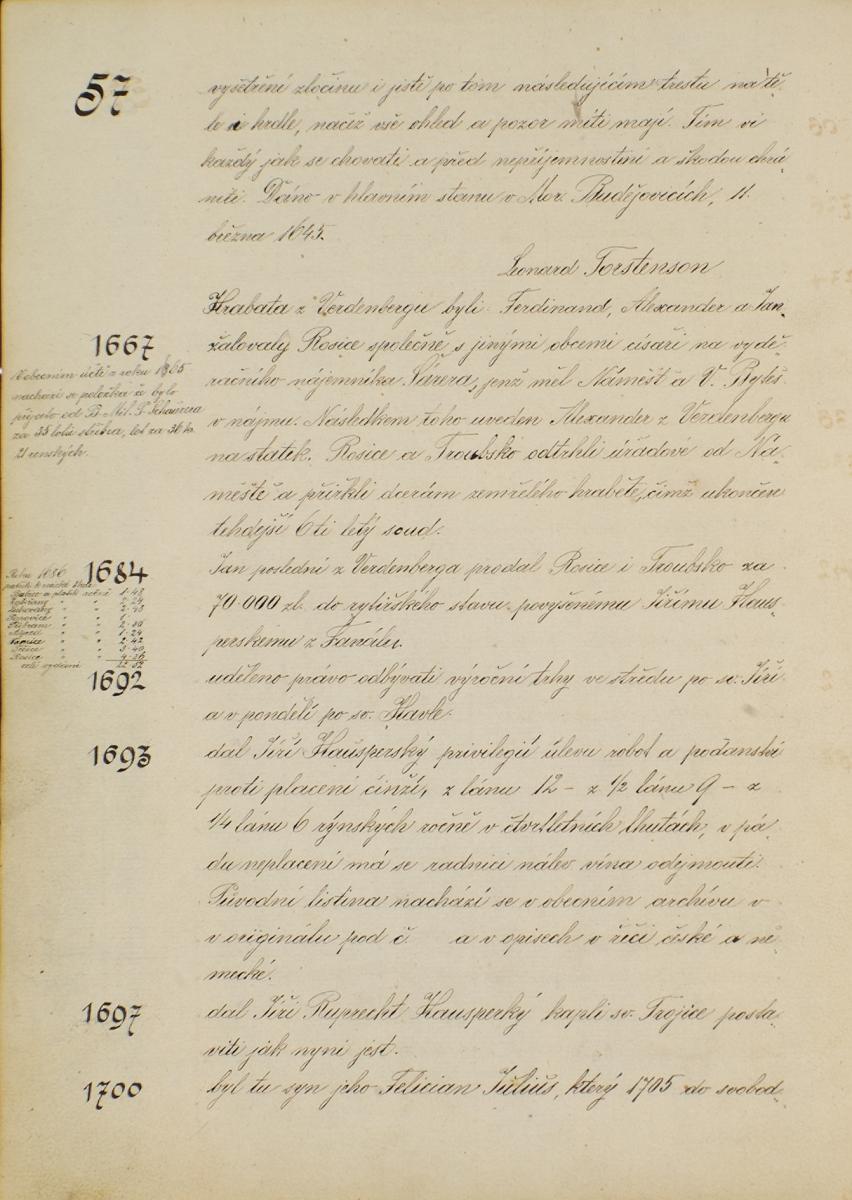 57
vyšetření zločinu i jistě po tom následujícím trestu na tě-
le i hrdle, načež vše ohled a pozor míti mají. Tím ví
každý jak se chovati a před nepříjemnostmi a škodou chrá-
niti. Dáno v hlavním stanu v Mor. Budějovicích, 11.
března 1645.
Leonard Torstenson
Hrabata z Verdenbergu byli Ferdinand, Alexander a Jan,
1667
žalovaly Rosice společně s jinými obcemi císaři na vydě-
račního nájemníka, jenž měl Náměšť a V. Byteš
v nájmu. Následkem toho uveden Alexander z Verdenbergu
na statek. Rosice a Troubsko odtrhli úřadové od Ná-
měště a přiřkli dcerám zemřelého hraběte, čímž ukončen
tehdejší 6ti letý soud.
V obecním účtě z roku 1665
nachází se položka že bylo
přijato od B. Mil. P. Schaurera
za 35 lotů stříbra, lot za 36 kr.
21 renských.
1684
Jan poslední z Verdenberga prodal Rosice i Troubsko za
70·000 zl. do rytířského stavu povýšenému Jiřímu Haus-
perskému z Fanálu.
Roku 1686
1692
uděleno právo odbývati výroční trhy ve středu po sv. Jiří
a v pondělí po sv. Havle.
1693
dal Jiří Hausperský privilegií úlevu robot a poddanství
proti placení činží, z lánu 12 – z 1/2 lánu 9 – z
1/4 lánu 6 rýnských ročně v čtvrtletních lhutách, v pá-
du neplacení má se radnici nálev vína odejmouti.
Původní listina nachází se v obecním archívu v
v originálu pod č. a v opisech v řeči české a ně-
mecké.
1697
dal Jiří Ruprecht Hausperký kapli sv. Trojice posta-
viti jak nyní jest.
1700
byl tu syn jeho Felician Julius, který 1705 do svobod-